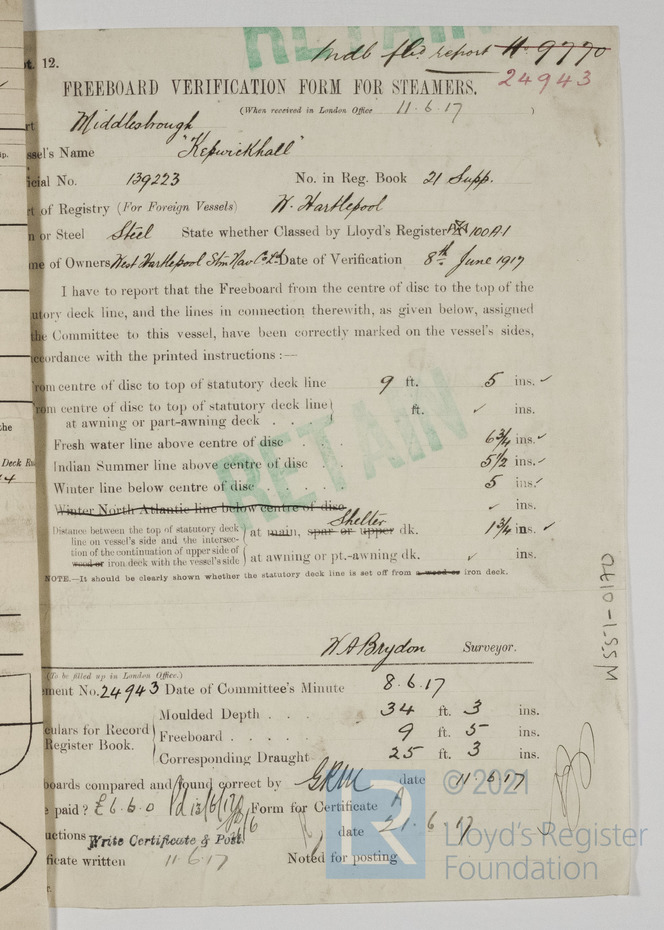 RETAIN
t. 12.
Mdb fbd report H. 9770
24943
FREEBOARD VERIFICATION FORM FOR STEAMERS.
(When received in London Office 11.6.17 )
rt Middlesbrough
ssel's Name "Kepwickhall"
icial No. 139223 No. in Reg. Book 21 Supp.
rt of Registry (For Foreign Vessels) W. Hartlepool
n or Steel Steel State whether Classed by Lloyd's Register 100A1
me of Owners West Hartlepool Stm Nav Co Ltd Date of Verification 8th June 1917
I have to report that the Freeboard from the centre of disc to the top of the
utory deck line, and the lines in connection therewith, as given below, assigned
the Committee to this vessel, have been correctly marked on the vessel's sides,
ccordance with the printed instructions :—
rom centre of disc to top of statutory deck line 9 ft. 5 ins. ✓
rom centre of disc to top of statutory deck line
at awning or part-awning deck . . ft. ✓ ins.
Fresh water line above centre of disc . . 6 3/4 ins. ✓
Indian Summer line above centre of disc . 5 1/2 ins. ✓
Winter line below centre of disc . . . 5 ins. ✓
Winter North Atlantic line below centre of disc ✓ ins.
Shelter
Distance between the top of statutory deck
line on vessel's side and the intersec-
at main, spar or upper dk. 1 3/4 ins. ✓
tion of the continuation of upper side of
wood or iron deck with the vessel's side
at awning or pt.-awning dk. ✓ ins.
NOTE.—It should be clearly shown whether the statutory deck line is set off from a wood or iron deck.
RETAIN
W A Brydon Surveyor.
(To be filled up in London Office.)
ment No. 24943 Date of Committee's Minute 8.6.17
culars for Record
Register Book.
Moulded Depth . . . 34 ft. 3 ins.
Freeboard . . . . 9 ft. 5 ins.
Corresponding Draught 25 ft. 3 ins.
boards compared and found correct by GRM date 11.6.17
e paid? £6.6.0 Pd 13/6/17 Form for Certificate A
uctions Write Certificate & Post date 21.6.17
ficate written 11.6.17 Noted for posting
the
Deck
M551-0170
© 2021
Lloyd's Register
Foundation